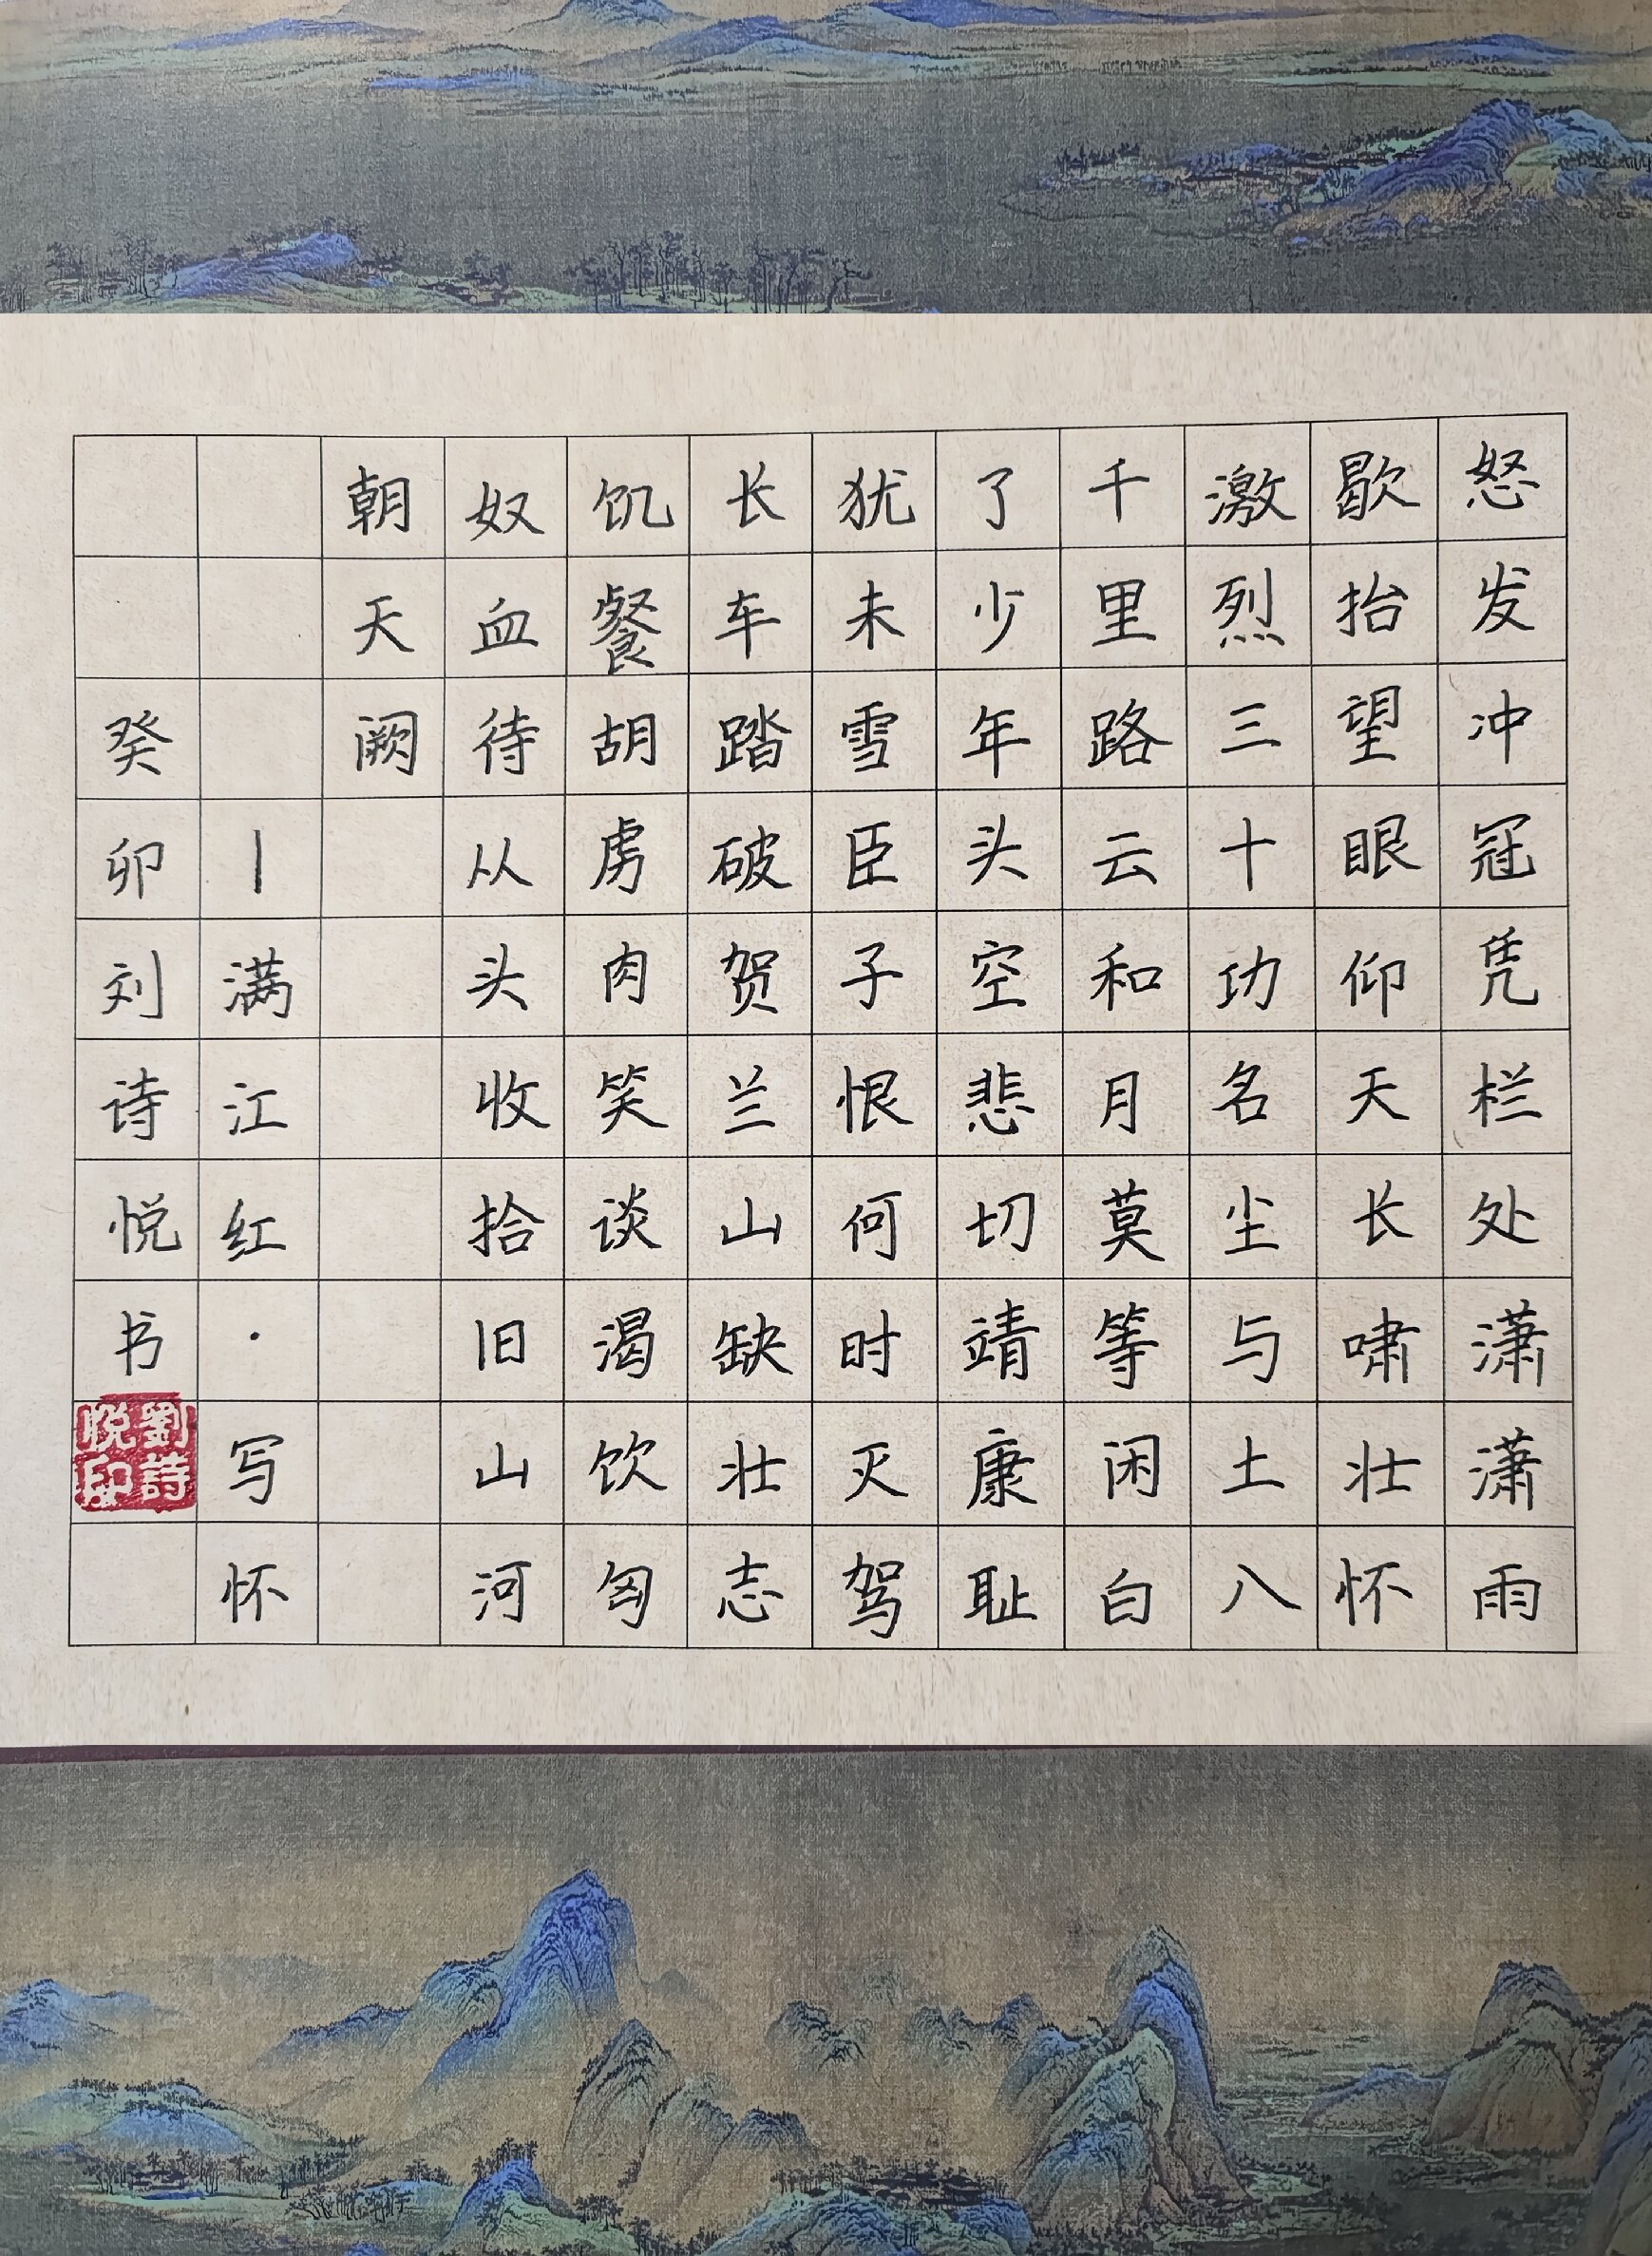 怒发冲冠凭栏处潇潇雨
歇抬望眼仰天长啸壮怀
激烈三十功名尘与土八
千里路云和月莫等闲白
了少年头空悲切靖康耻
犹未雪臣子恨何时灭驾
长车踏破贺兰山缺壮志
饥餐胡虏肉笑谈渴饮匈
奴血待从头收拾旧山河
朝天阙
—满江红·写怀
癸卯刘诗悦书
劉詩
悦印